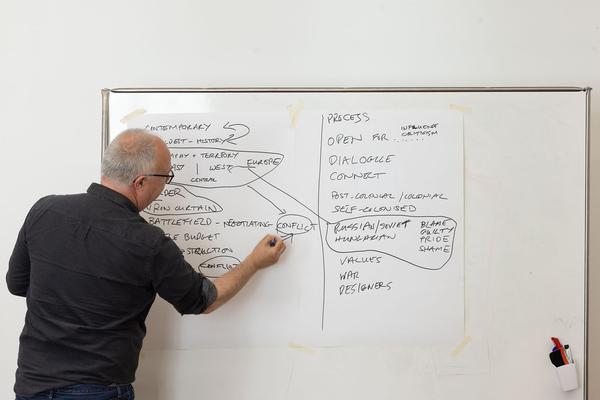 CONTEMPORARY
WEST - HISTORY
+ TERRITORY
EUROPE
WEST
CENTRAL
IRON CURTAIN
BATTLEFIELD - NEGOTIATING CONFLICT
BUDGET
CONFLICT
PROCESS
OPEN FOR INFLUENCE
CRITICISM
DIALOGUE
CONNECT
POST-COLONIAL/COLONIAL
SELF-COLONISED
RUSSIAN/SOVIET
HUNGARIAN
BLAME
GUILTY
PRIDE
SHAME
VALUES
WAR
DESIGNERS